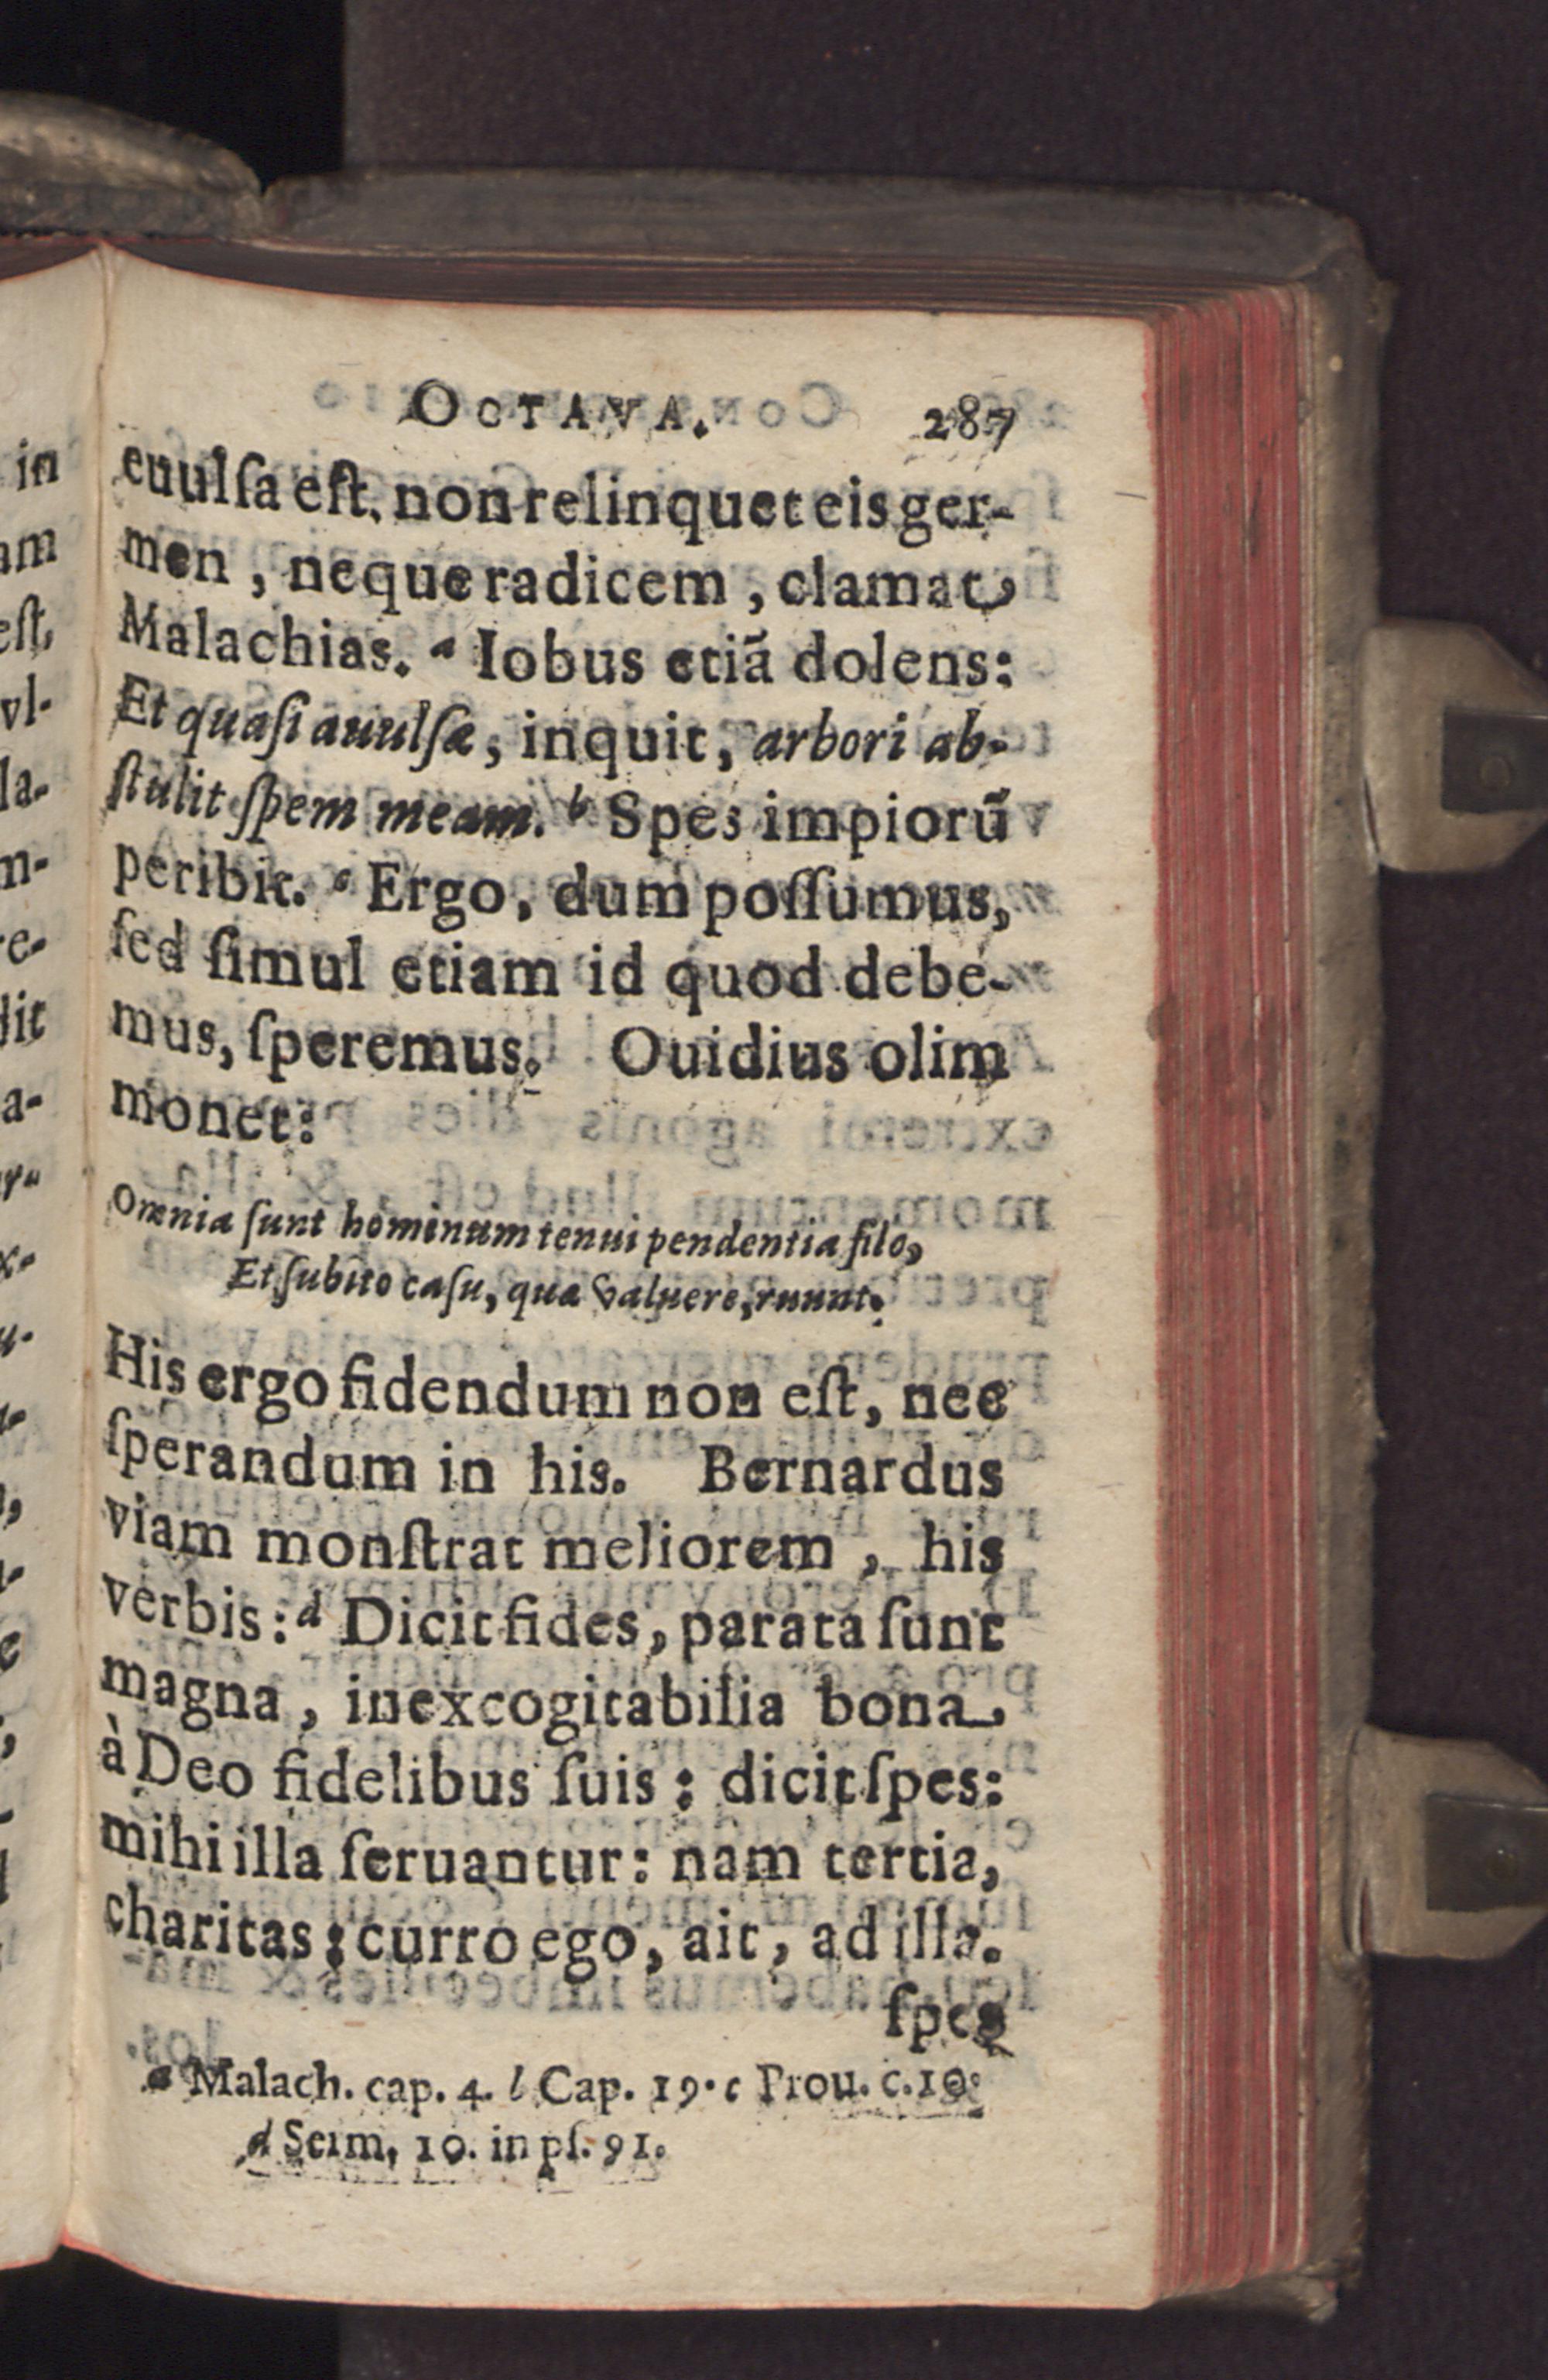 OCTAVA. 287
euulſa eſt, non relinquet eis ger-
men, neque radicem, clamat
Malachias. a Iobus etiã dolens:
Et quaſi auulſæ, inquit, arbori ab-
ſtulit ſpem meam. b Spes impiorũ
peribit. c Ergo, dum poſſumus,
ſed ſimul etiam id quod debe-
mus, ſperemus. Ouidius olim
monet:
Omnia ſunt hominum tenui pendentia filo,
Et ſubito caſu, quæ valuere, ruunt.
His ergo fidendum non eſt, nec
ſperandum in his. Bernardus
viam monſtrat meliorem, his
verbis: d Dicit fides, parata ſunt
magna, inexcogitabilia bona
à Deo fidelibus ſuis: dicit ſpes:
mihi illa ſeruantur: nam tertia,
charitas: curro ego, ait, ad illa.
ſpes
a Malach. cap. 4. b Cap. 19. c Prou. c. 10.
d Serm. 10. in pſ. 91.